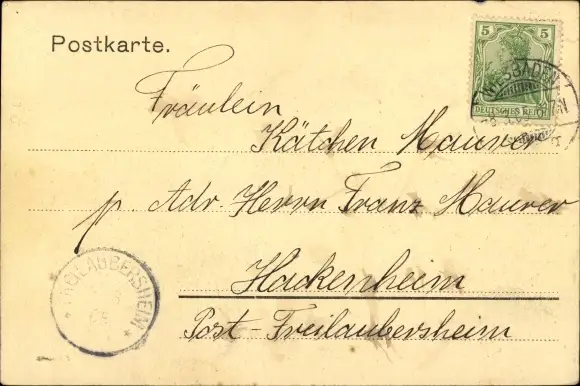 Postkarte.
5 5
DEUTSCHES REICH
WIESBADEN
Fräulein
Kätchen Maurer
p. Adr. Herrn Franz Maurer
Hackenheim
Post-Freilaubersheim
FREILAUBERSHEIM